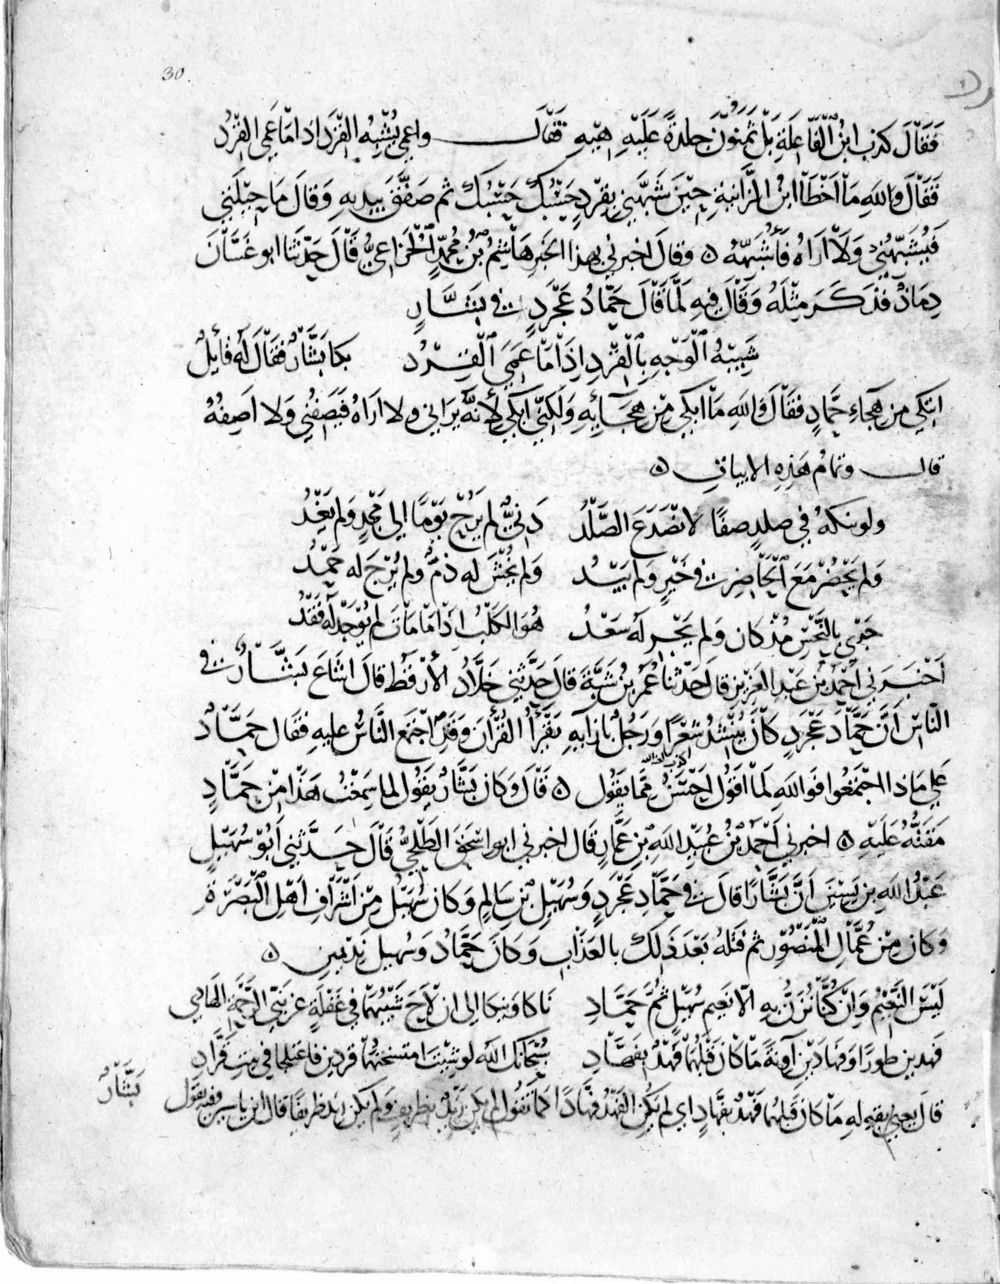 30
فَقَالَ كذب ابنُ الْفَاعِلَةِ بَلْ ثَمَنُونَ جلدةً عَلَيْهِ هِيْهِ فَقَالَ واعمى يُشْبِهُ القِرْدَ اذا مَا عَمِىَ القِرْدُ
فَقَالَ وَاللهِ مَا اَخْطَا ابْنُ الزَّانِيَةِ حِيْنَ شَبَّهَنِي بِقِرْدٍ حَسْبُكَ حَسْبُكَ ثم صَفَّقَ بِيَدَيهِ وَقالَ مَا حِيْلَتِي
فَيُشَبِّهُنِي وَلاَ اَرَاهُ فَأُشَبِّهُهُ ٥ وقال اخبرني بهذا الخبر هَاشِمُ بْنُ مُحَمَّدٍ الْخُزَاعِىُّ قَالَ حَدَّثنا ابو غَسَّانَ
دِمَاذُ فَذَكَرَ مِثْلَهُ وَقَالَ فِيهِ لَمَّا قَالَ حَمَّادُ عَجْرَدٍ في بَشَّارٍ
شَبِيْهُ الْوَجْهِ بِالْقِرْدِ اِذَا مَا عَمِىَ الْقِرْدُ بكا بَشَّارُ فقَالَ لَهُ قَائِلُ
اتبكي مِن هِجَاءِ حَمَّادٍ فقَالَ وَاللهِ مَا ابكي مِنْ هِجَآئِهِ وَلٰكِنِّي ابكي لأَنَّهُ يَرَاني ولا اَرَاهُ فَيَصِفُنِي وَلا اَصِفُهُ
قال وتمامُ هَذِهِ الابيات ٥
ولو ينكه في صلدٍ صفًا لانْصَدَعَ الصَّلْدُ دَنِيٌّ لم يَرُحْ يَوْمًا الى مَجْدٍ وَلم يَغْدُ
وَلم يَحْضُرْ مَعَ الْحَاضِرِ في خَيْرٍ وَلم يَبْدُ وَلم يُخْشَ له ذَمٌّ ولم يُرْجَ له حَمْدُ
جَرى بِالنَّحْسِ مُذْ كان وَلم يَجْرِ لَهُ سَعْدُ هُوَ الكَلْبُ اِذَا مَا مَاتَ لم يُوْجَدْ لَهُ فَقْدُ
اَخْبَرَني اَحْمَدُ بْنُ عَبْدِ العَزِيزِ قال حَدَّثنا عُمَرُ بْنُ شَبَّةَ قالَ حَدَّثَنِي خَلَّادُ الأَرْقَطُ قالَ اَشَاعَ بَشَّارُ في
النَّاسِ اَنَّ حَمَّادَ عَجْرَدٍ كَانَ يُنْشِدُ شِعْرًا وَرَجُلٌ بازآئِهِ يَقْرَأُ القُرْآنَ وَقَدِ اجْتَمَعَ النَّاسُ عليهِ فقَال حَمَّادُ
عَلى مَاذ اجْتَمَعُوا فوَاللهِ لَمَا اَقُولُ اَحْسَنُ مِمَّا يقُول ٥ قَالَ وَكان بَشَّارُ يقُولُ لما سمِعْتُ هَذَا مِنْ حَمَّادٍ
مَقَتُّهُ عَلَيْهِ ٥ اخبرني اَحْمَدُ بْنُ عُبَيْدِ اللهِ بْنِ عَمَّارٍ قَال اخبرني ابو اسْحَقَ الطَّلْحِىُّ قَالَ حَدَّثَني اَبُوْ سُهَيْلٍ
عَبْدُ اللهِ بن يٰسِيْنَ اَنَّ بَشَّارًا قالَ في حَمَّادِ عَجْرَدٍ وَسُهَيْلِ بْنِ سَالِمٍ وَكانَ سُهَيْلٌ مِنْ اَشْرَافِ اَهْلِ الْبَصْرَةِ
وَكانَ مِنْ عُمَّالِ الْمَنْصُوْرِ ثمَّ قَتَلَهُ بَعْدَ ذَلِكَ بالعَذَابِ وَكانَ حَمَّادٌ وَسُهيل نَدِيْمَينِ ٥
لَيْسَ النَّعِيْمُ وَاِنْ كُنَّا نُزَنُّ بِهِ الّا نَعِيمُ سُهَيْلٍ ثُمَّ حَمَّادِ
فهدين طورًا وَفهادَيْنِ آوِنَةً مَا كانَ قَبْلَهُمَا فَهْدٌ بِفَهَّادِ سُبْحَانَكَ اللهُ لَو شِئْتَ امتسختَهُما قردين
قال يعني بقولهِ مَا كانَ قبلهما فَهْدٌ بفَهَّادٍ اي لم يَكُنِ الفَهْدُ فهَّادًا كما تقُول لم يَكُنْ زَيْدٌ بظريفٍ وَلم يَكُنْ زيد ظريفًا قال
بَشَّارُ